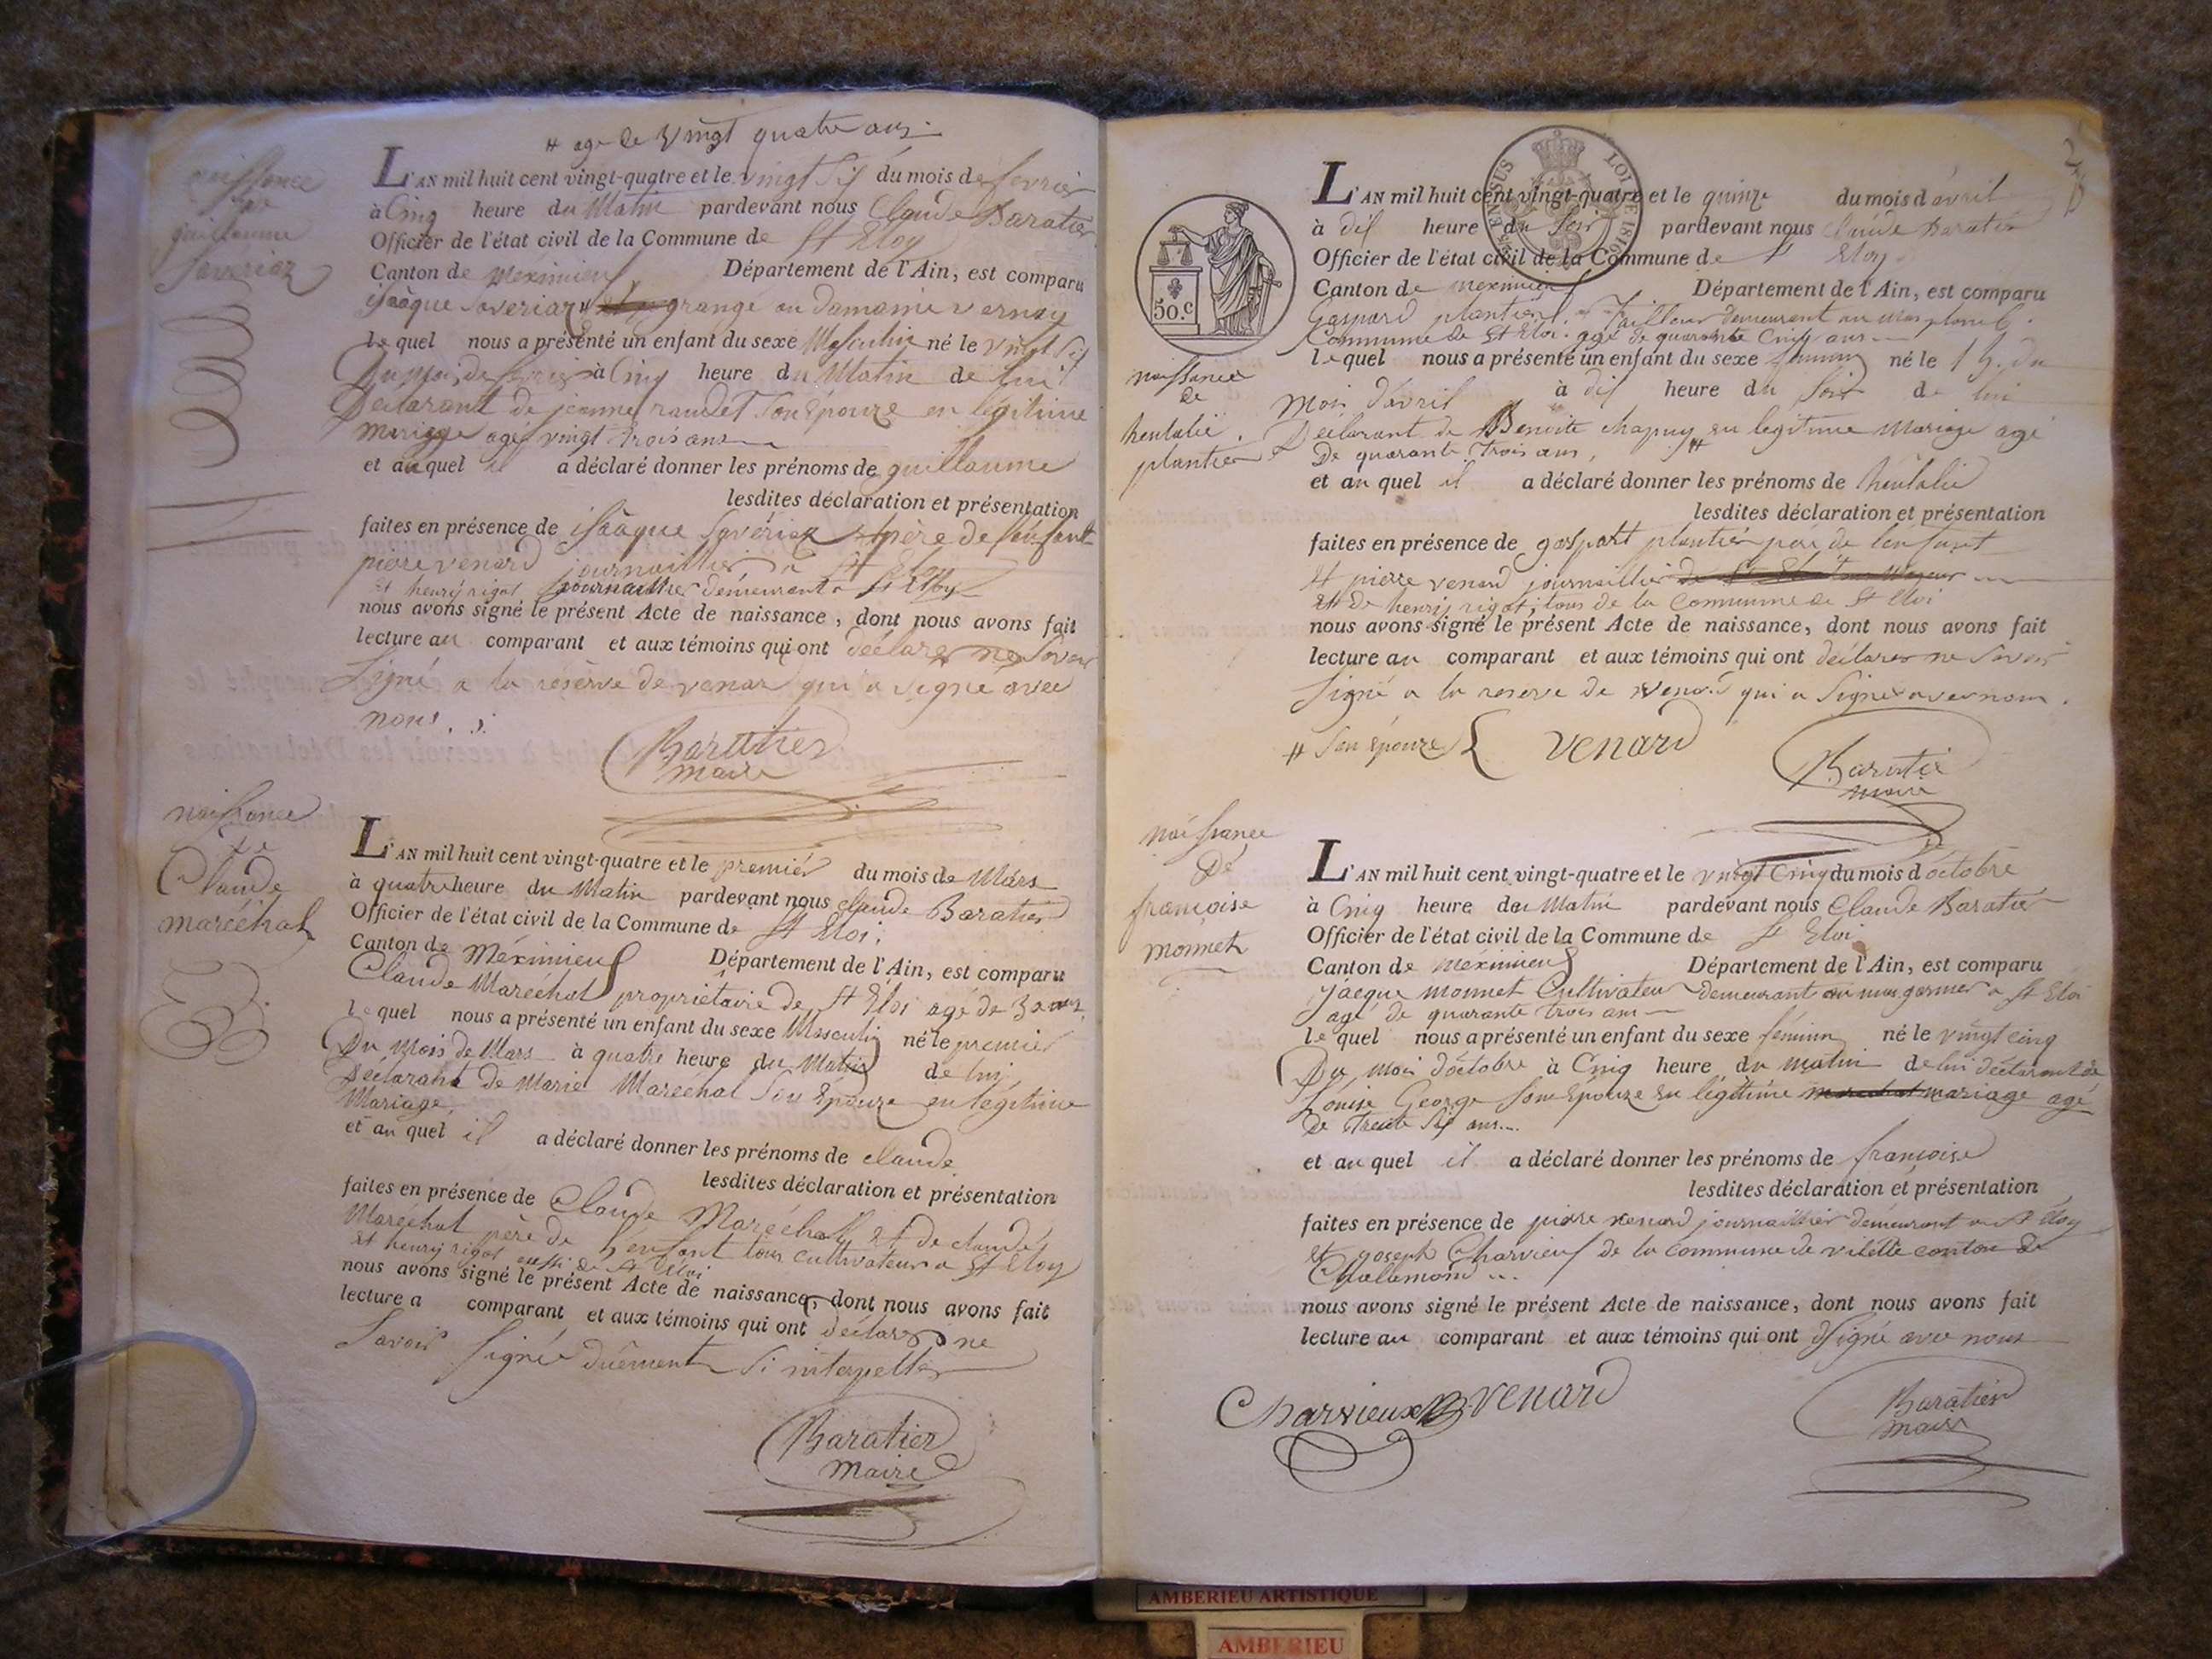 # age de vingt quatre ans
naissance
de
guillaume
Saveriaz
L'AN mil huit cent vingt-quatre et le vingt Six du mois de fevrier
à Cinq heure du Matin pardevant nous Claude Baratier
Officier de l'état civil de la Commune de St Eloy
Canton de Meximieux Département de l'Ain, est comparu
isaàque Saveriaz # grangé au Damaine vernay
lequel nous a présenté un enfant du sexe Masculin né le vingt Six
Du Mois de fevrier à Cinq heure du Matin de lui
Déclarant de jeanne raudet Son Épouze en légitime
Mariage agé vingt trois ans
et au quel il a déclaré donner les prénoms de guillaume
lesdites déclaration et présentation
faites en présence de isaàque Savériaz père de l'enfant
piere venard journaillier a St Eloy
et henry rigot journaillier demeurant a St Eloy
nous avons signé le présent Acte de naissance, dont nous avons fait
lecture au comparant et aux témoins qui ont déclarer ne Savoir
Signé a la réserve de venar qui a signé avec
nous.
Baratier
maire
naissance
de
Claude
maréchal
L'AN mil huit cent vingt-quatre et le premier du mois de Mars
à quatre heure du Matin pardevant nous Claude Baratier
Officier de l'état civil de la Commune de St Eloi
Canton de Méximieux Département de l'Ain, est comparu
Claude Maréchal propriétaire de St Eloi agé de 30 ans
lequel nous a présenté un enfant du sexe Masculin né le premier
Du Mois de Mars à quatre heure du Matin de lui
Déclarant de Marie Maréchal Son Épouze en légitime
Mariage
et au quel il a déclaré donner les prénoms de claude
lesdites déclaration et présentation
faites en présence de Claude Maréchal et de claude
Maréchal père de l'enfant tous cultivateur a St Eloy
et henry rigot aussi de St Eloi
nous avons signé le présent Acte de naissance, dont nous avons fait
lecture a comparant et aux témoins qui ont déclarer ne
Savoir Signé dûement Si interpeller
Baratier
Maire
50.c
LOI DE 1816
L'AN mil huit cent vingt-quatre et le quinze du mois d'avril
à dix heure du Soir pardevant nous Claude Baratier
Officier de l'état civil de la Commune de St Eloy
Canton de Meximieux Département de l'Ain, est comparu
Gaspard plantier Tailleur demeurant au mas
Commune de St Eloi agé de quarante Cinq ans
lequel nous a présenté un enfant du sexe feminin né le 15 du
Mois d'avril à dix heure du Soir de lui
Déclarant de Benoite chapuy # en legitime Mariage agé
De quarante Trois ans,
naissance
de
heulalie
plantier
et au quel il a déclaré donner les prénoms de heulalie
lesdites déclaration et présentation
faites en présence de gaspart plantier père de lenfant
et pierre venard journaillier
et de henry rigot, tous de la Commune de St Eloi
nous avons signé le présent Acte de naissance, dont nous avons fait
lecture au comparant et aux témoins qui ont déclarer ne Savoir
Signé a la reserve de venard qui a Signer avec nous.
# Son épouze venard
Baratier
maire
naissance
De
françoise
monnet
L'AN mil huit cent vingt-quatre et le vingt Cinq du mois d'octobre
à Cinq heure du Matin pardevant nous Claude Baratier
Officier de l'état civil de la Commune de St Eloi
Canton de Méximieux Département de l'Ain, est comparu
Jacque monnet Cultivateur demeurant au mas a St Eloi
agé de quarante trois ans
lequel nous a présenté un enfant du sexe féminin né le vingt cinq
Du Mois d'octobre à Cinq heure du matin de lui déclarant de
Louise George Son Épouze en légitime mariage agé
De Trente Six ans
et au quel il a déclaré donner les prénoms de françoise
lesdites déclaration et présentation
faites en présence de pierre venard journaillier demeurant a St Eloy
et joseph Charvieux de la commune de vilette canton de
Challamond
nous avons signé le présent Acte de naissance, dont nous avons fait
lecture au comparant et aux témoins qui ont Signé avec nous
Charvieux venard
Baratier
maire
AMBERIEU ARTISTIQUE
AMBERIEU